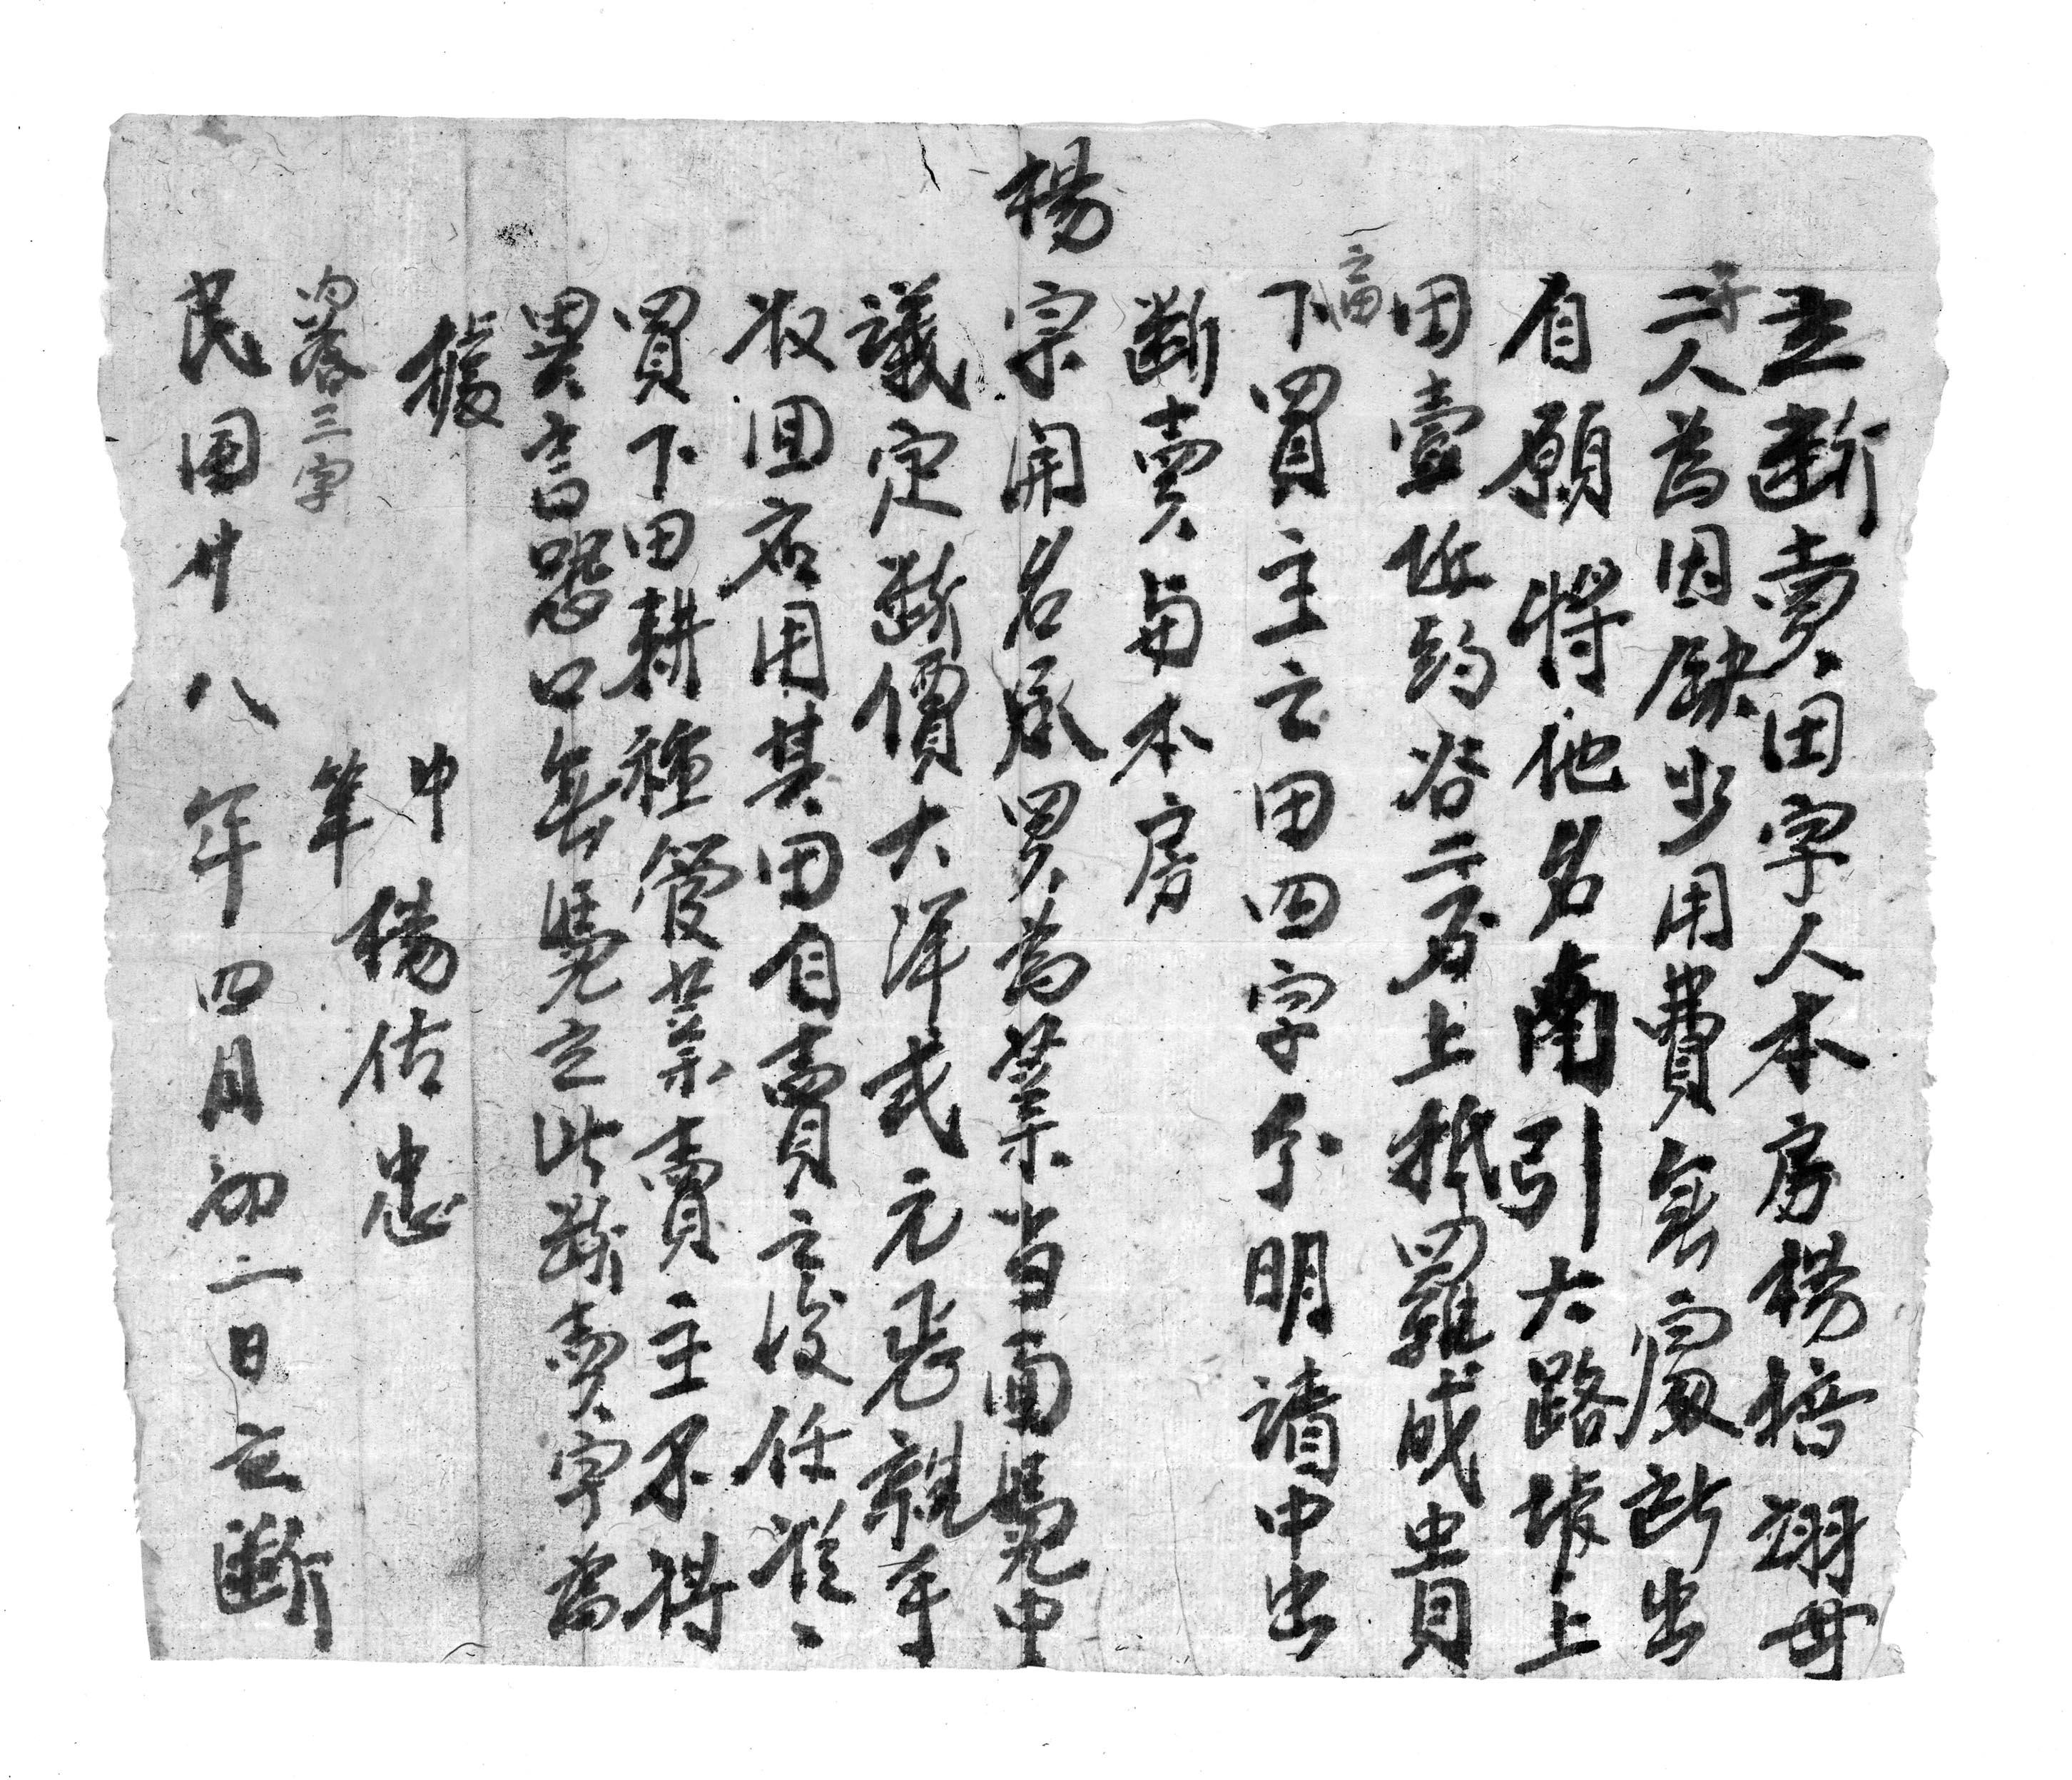 立斷賣田字人本房楊培翊母
子二人為因缺少用費無處所出
自願將地名南引大路坎上
田壹坵約谷二百上抵羅成貴
之田
下買主之田四字分明請中出
斷賣與本房
楊宗開名承買為業当面凴中
議定斷價大洋弍元正親手
收回應用其田自賣之後任從
買下田耕種管業賣主不得
異言恐口無凴立此斷賣字為
據
中
筆 楊佑忠
内落三字
民國廿八年四月初二日立斷